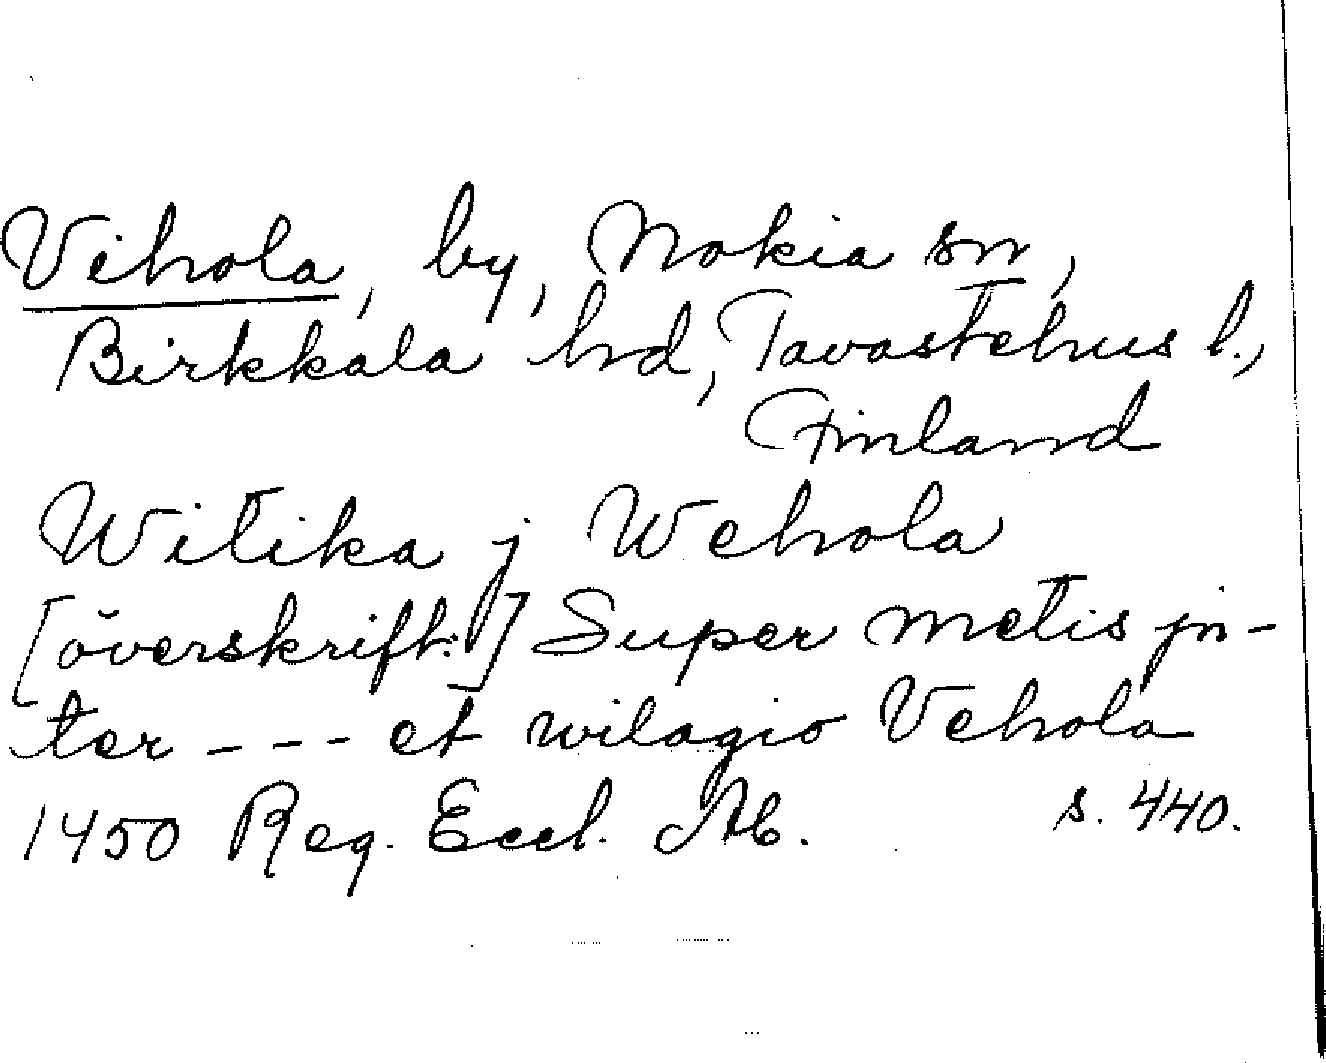 Vihola, by, Nokia sn,
Birkkala hd, Tavastehus l.,
Finland
Witika j Wehola
[överskrift:] Super metis jn-
ter - - - et wilagio Vehola
1450 Reg. Eccl. Ab. s. 440.